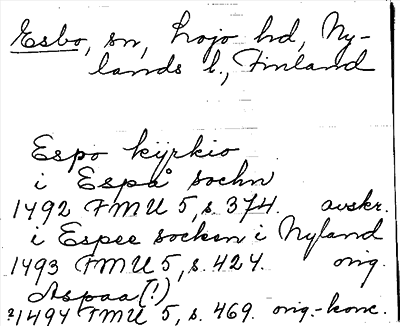 Esbo, sn, Lojo hd, Ny-
lands l., Finland
Espo kyrkio
i Espå sochn
1492 FMU 5, s. 374. avskr.
i Espee socken i Nyland
1493 FMU 5, s. 424. orig.
Aspaa (!)
?1494 FMU 5, s. 469. orig.-konc.